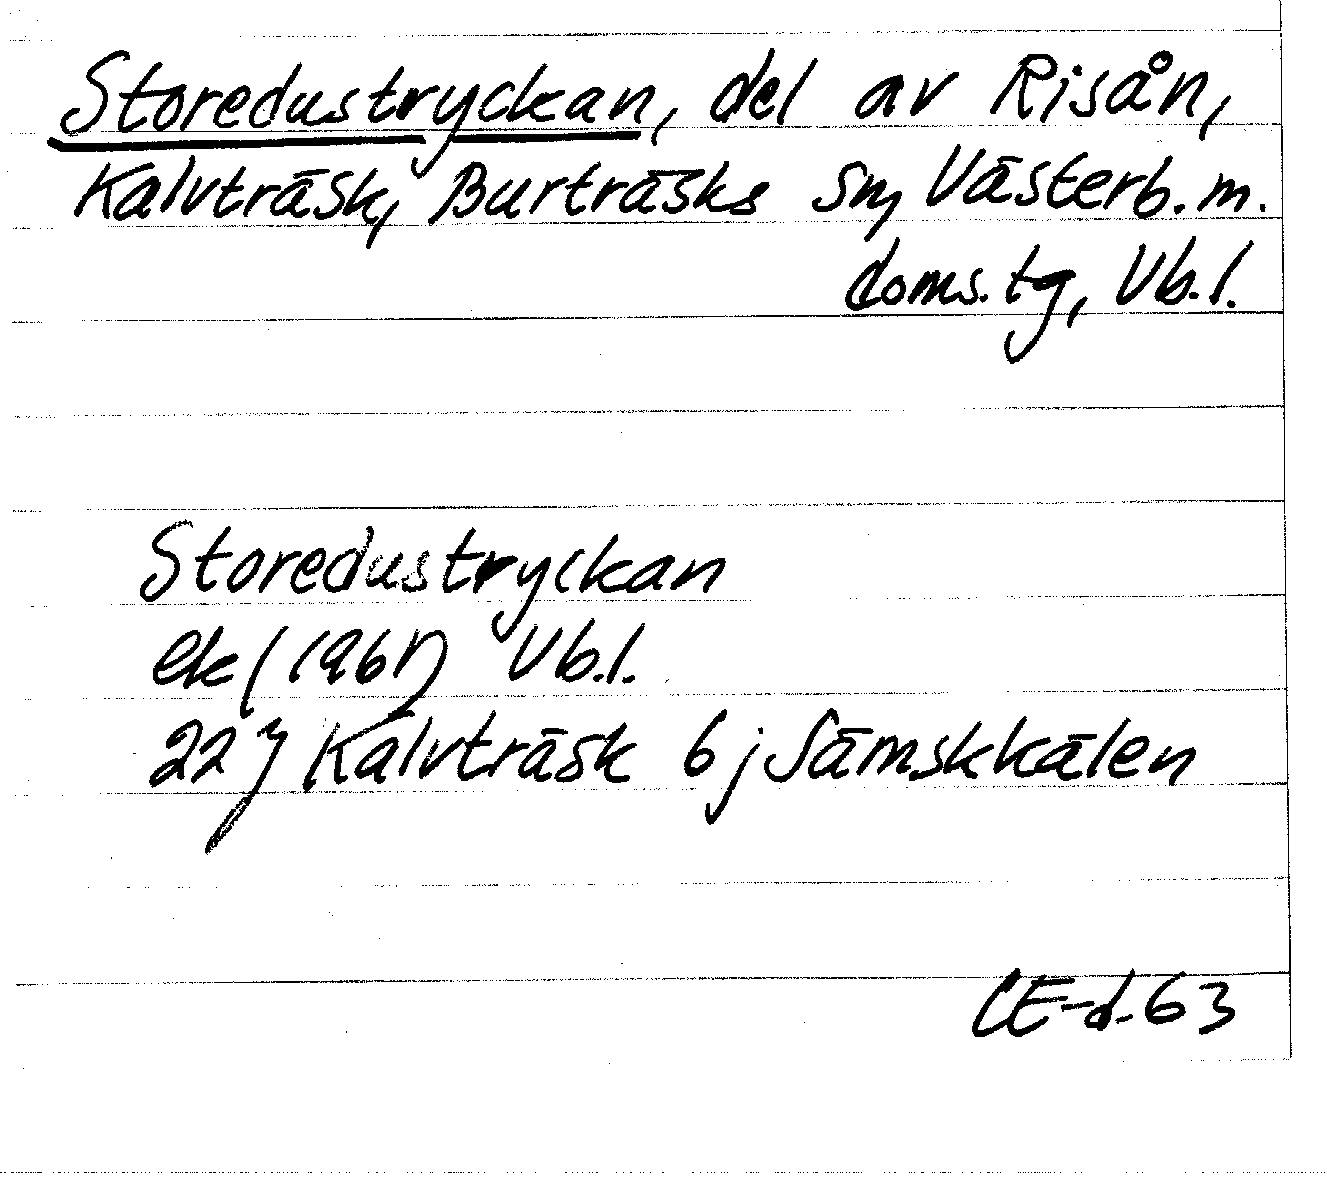 Storedustryckan, del av Risån,
Kalvträsk, Burträsks sn, Västerb. m.
doms. tg, Vb. l.
Storedustryckan
ek (1961) Vb. l.
22 j Kalvträsk 6 j Sämskkälen
CE-d-63